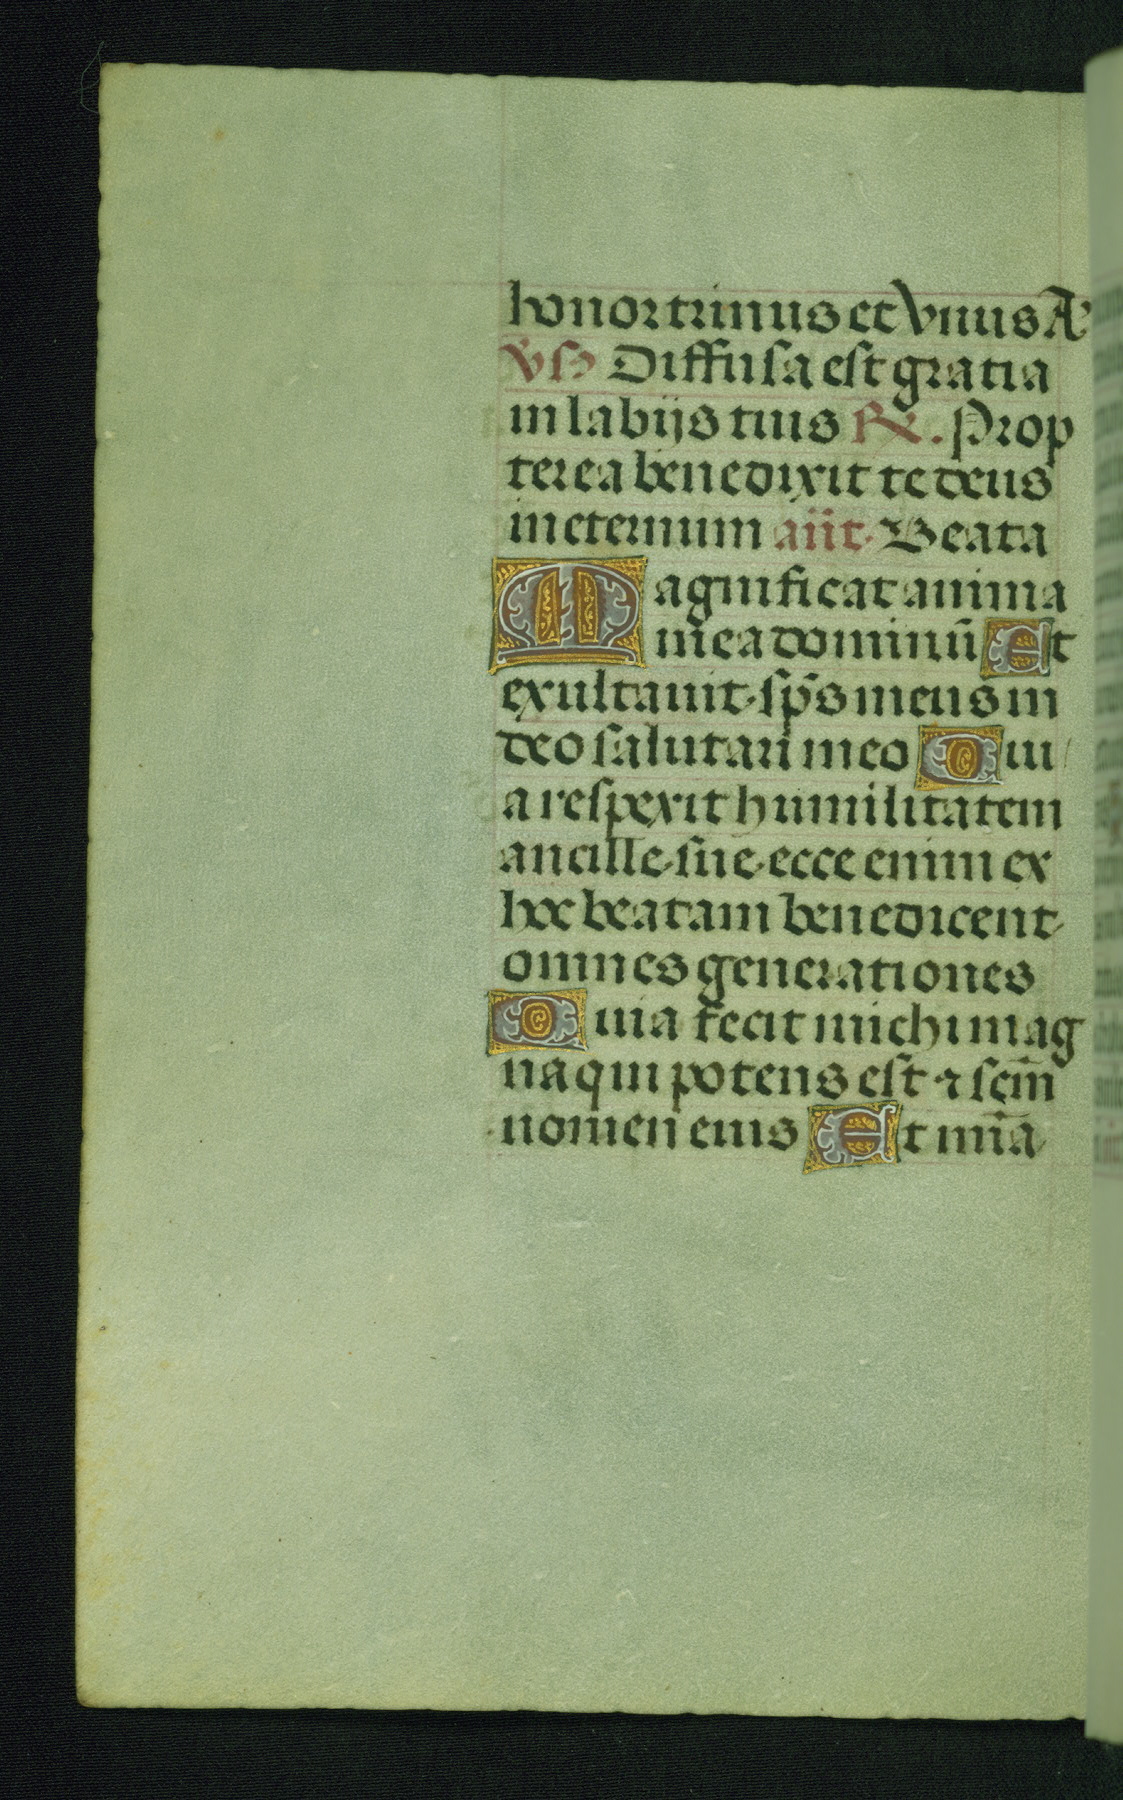 honor trinus et vnus A
vs̃ Diffusa est gratia
in labijs tuis ℟. Prop
terea benedixit te deus
in eternum añt. Beata
Magnificat anima
mea dominũ Et
exultauit sp̃s meus in
deo salutari meo Qui
a respexit humilitatem
ancille sue ecce enim ex
hoc beatam benedicent
omnes generationes
Quia fecit michi mag
na qui potens est ⁊ scm̃
nomen eius Et mia̅